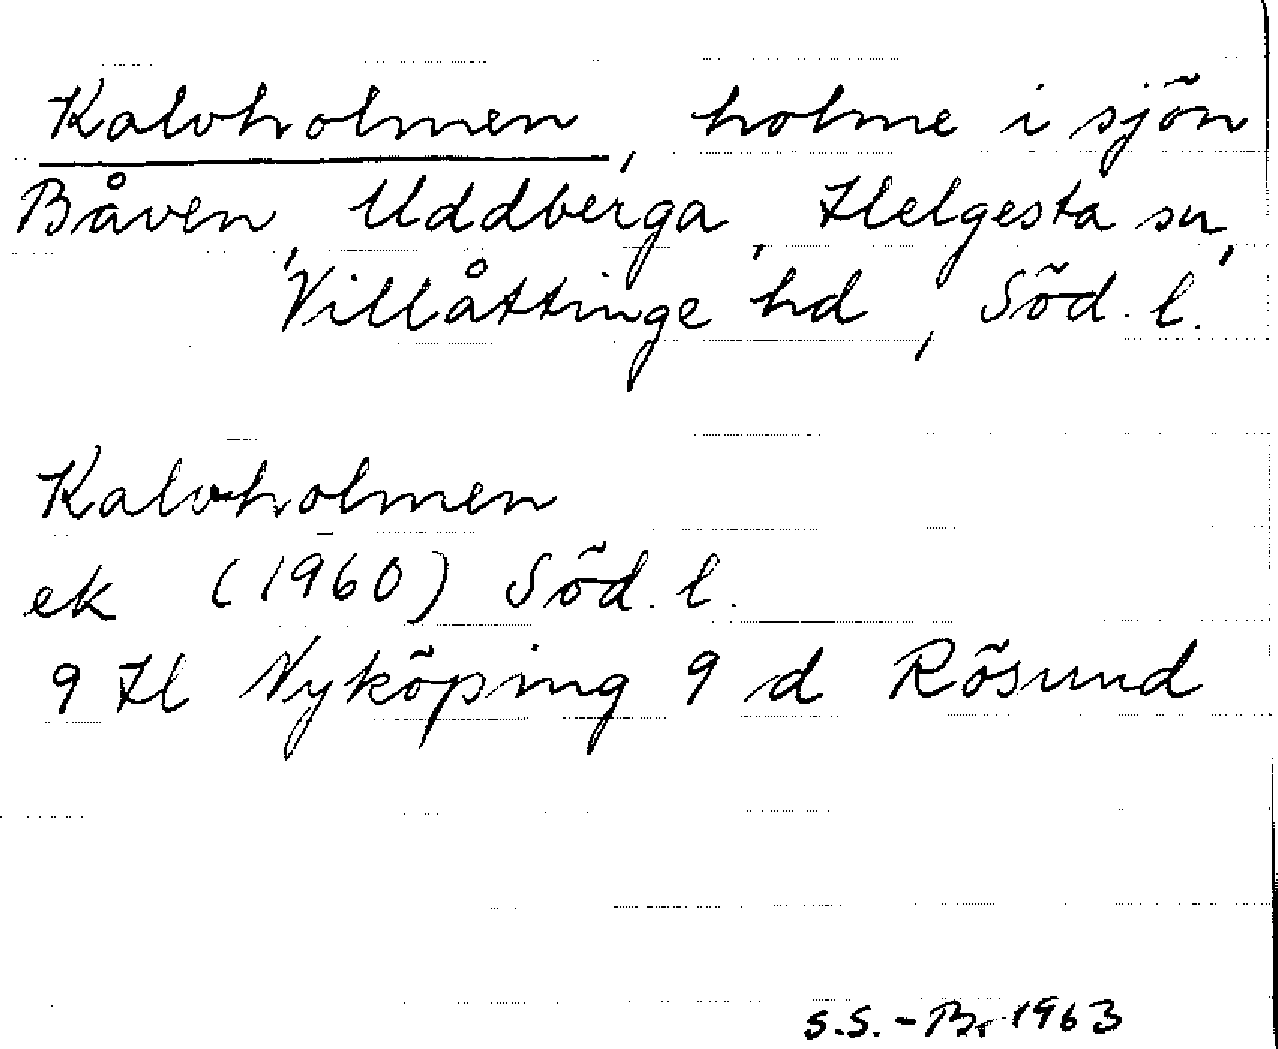 Kalvholmen, holme i sjön
Båven, Uddberga, Helgesta sn,
Villåttinge hd, Söd. l.
Kalvholmen
ek (1960) Söd. l.
9 H Nyköping 9 d Rösund
S.S.-Br 1963